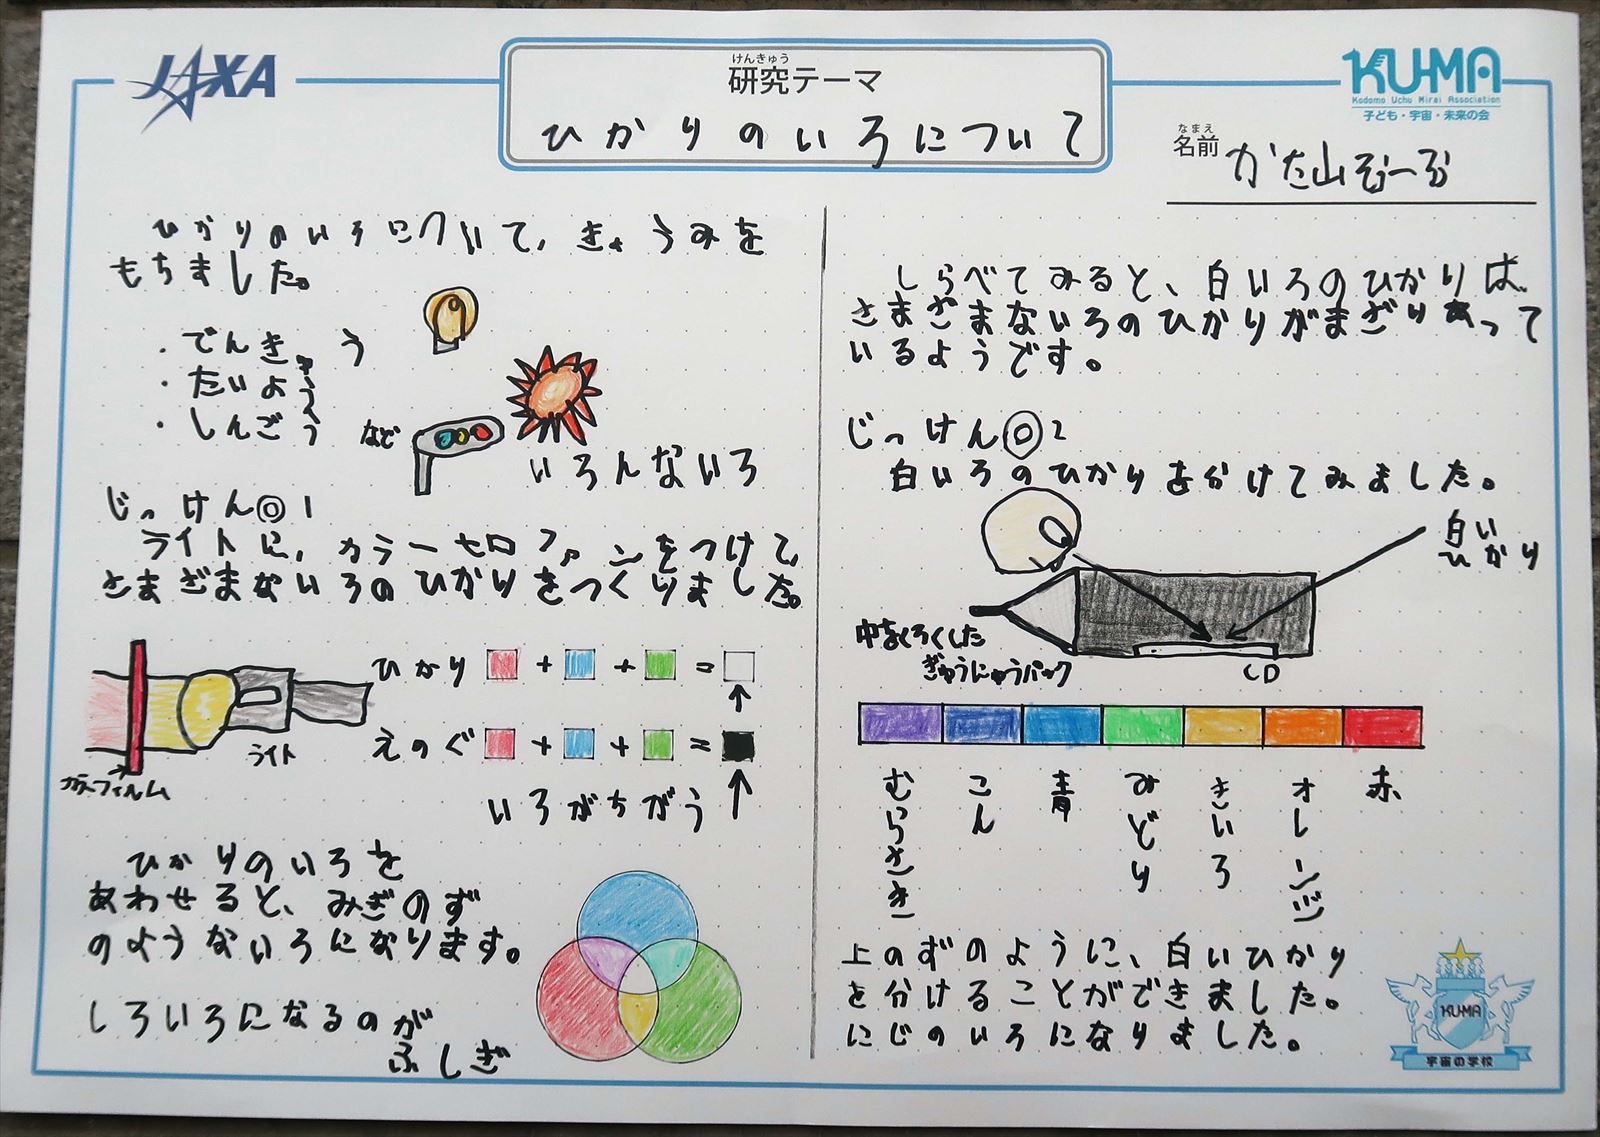 JAXA
けんきゅう
研究テーマ
ひかりのいろについて
KU-MA
Kodomo Uchu Mirai Association
子ども・宇宙・未来の会
なまえ
名前
ひかりのいろについて、きょうみを
もちました。
・でんきゅう
・たいよう
・しんごう
など
いろんないろ
じっけん◎1
ライトに、カラーセロファンをつけて、
さまざまないろのひかりをつくりました。
カラーフィルム
ライト
ひかり + + =
えのぐ + + =
いろがちがう
ひかりのいろを
あわせると、みぎのず
のようないろになります。
しろいろになるのが
ふしぎ
しらべてみると、白いろのひかりは、
さまざまないろのひかりがまざりあって
いるようです。
じっけん◎2
白いろのひかりを分けてみました。
白い
ひかり
中をくろくした
ぎゅうにゅうパック
CD
むらさき
こん
青
みどり
きいろ
オレンジ
赤
上のずのように、白いひかり
を分けることができました。
にじのいろになりました。
KU-MA
宇宙の学校